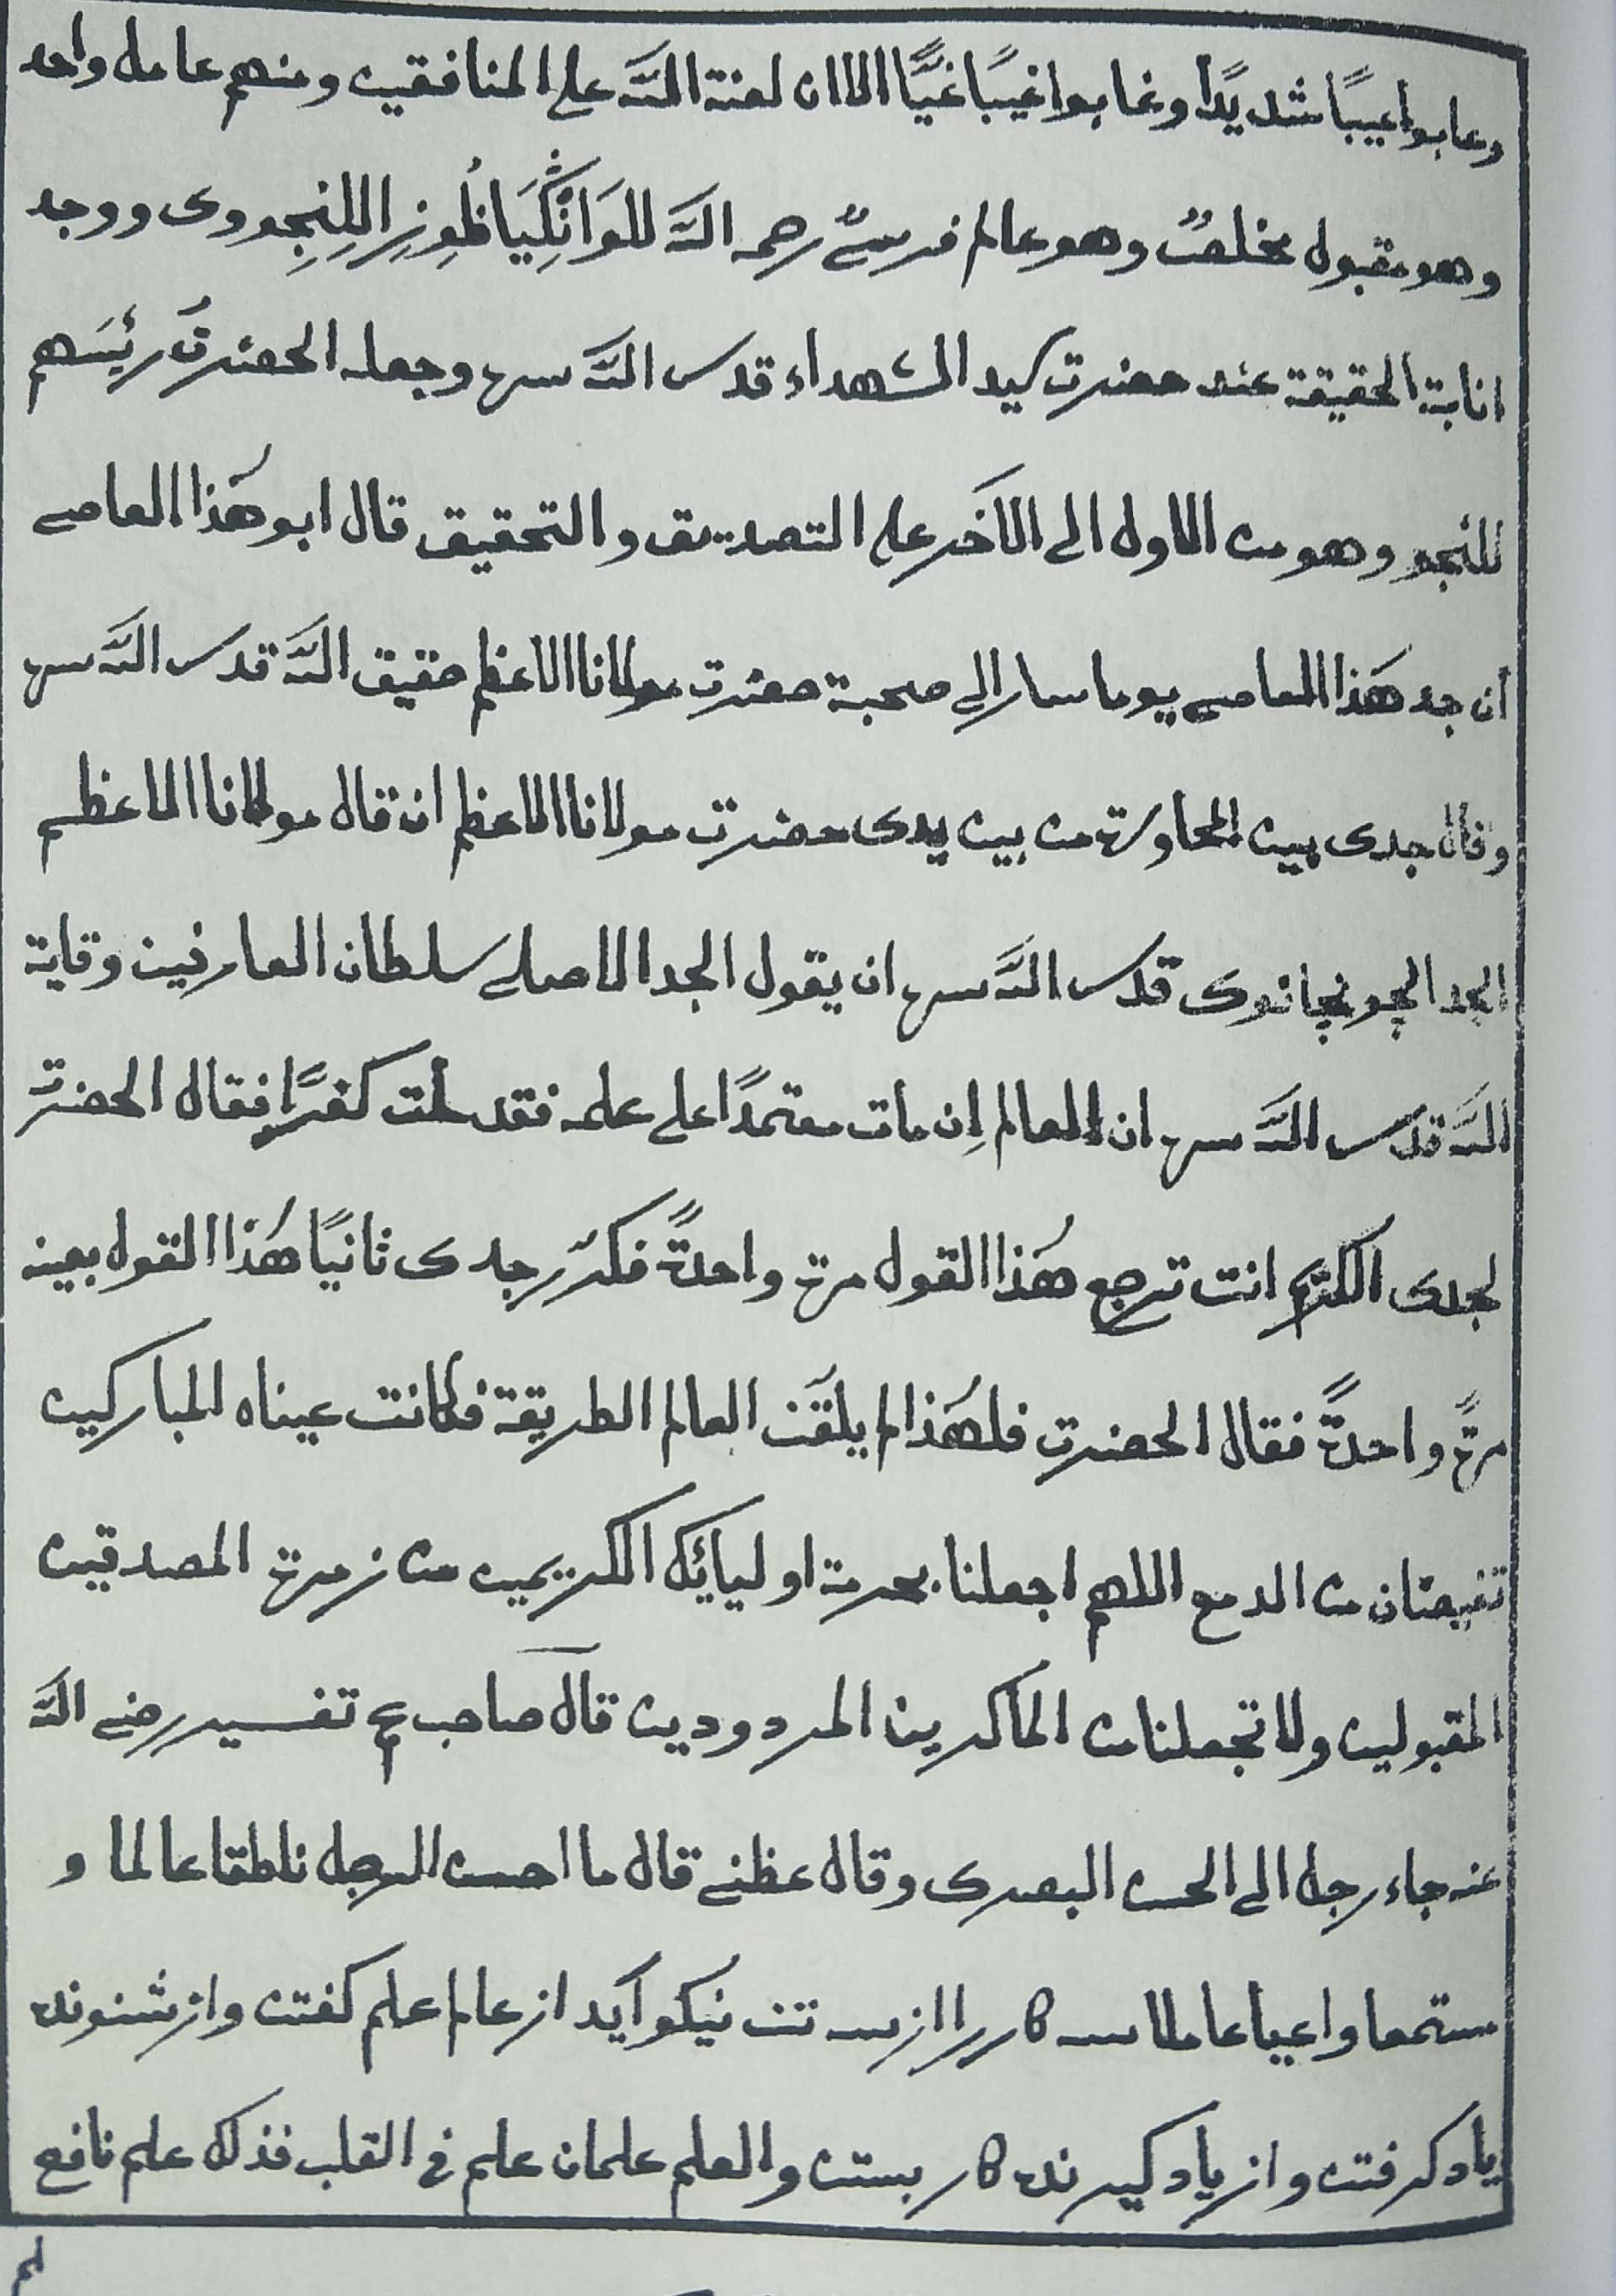 وعابوا عيبًا شديدًا وغابوا غيبًا غيًّا الا ان لعنة اللّه على المنافقين ومنهم عامل واحد
وهو مقبول مخلصٌ وهو عالم فرسىٌ رحمه اللّه للوَانْكِيَا اللِنِجووى ووجد
انابة الحقيقة عند حضرت سيد الشهداء قدس اللّه سره وجعله الحضرتُ رئيسَهم
للنجو وهو من الاول الى الآخر على التصديق والتحقيق قال ابو هٰذا العاصے
أن جد هٰذا العاصے يوما سار الى صحبة حضرت مولانا الاعظم حقيق اللّه قدس اللّه سره
وقال جدى بين المحاورة من بين يدى حضرت مولانا الاعظم ان قال مولانا الاعظم
الجد الچونچانوى قدس اللّه سره ان يقول الجد الاصلے سلطان العارفين وقاية
اللّه قدس اللّه سره ان العالم اِن مات معتمدًا على علمه فقد مات كفرًا فقال الحضرت
لجدى الكريم انت ترجع هٰذا القول مرة واحدةً فكرّر جدى ثانيًا هٰذا القول بعينه
مرةً واحدةً فقال الحضرت فلهٰذا لم يلقّن العالم الطريقة فكانت عيناه المباركين
تفيضان من الدمع اللهم اجعلنا بحرمة اوليائك الكريمين من زمرة المصدقين
المقبولين ولا تجعلنا من الماكرين المردودين قال صاحب عم تفسير رضے اللّه
عنه جاء رجل الى الحسن البصرى وقال عظنے قال ما احسن الرجل ناطقا عالما و
مستمعا واعيا عاملا كار را از تن نيكو آيد از عالم علم كفتن وازشنونده
ياد كرفتن واز ياد كيرنده كار بستن والعلم علمان علم فى القلب فذلك علم نافع